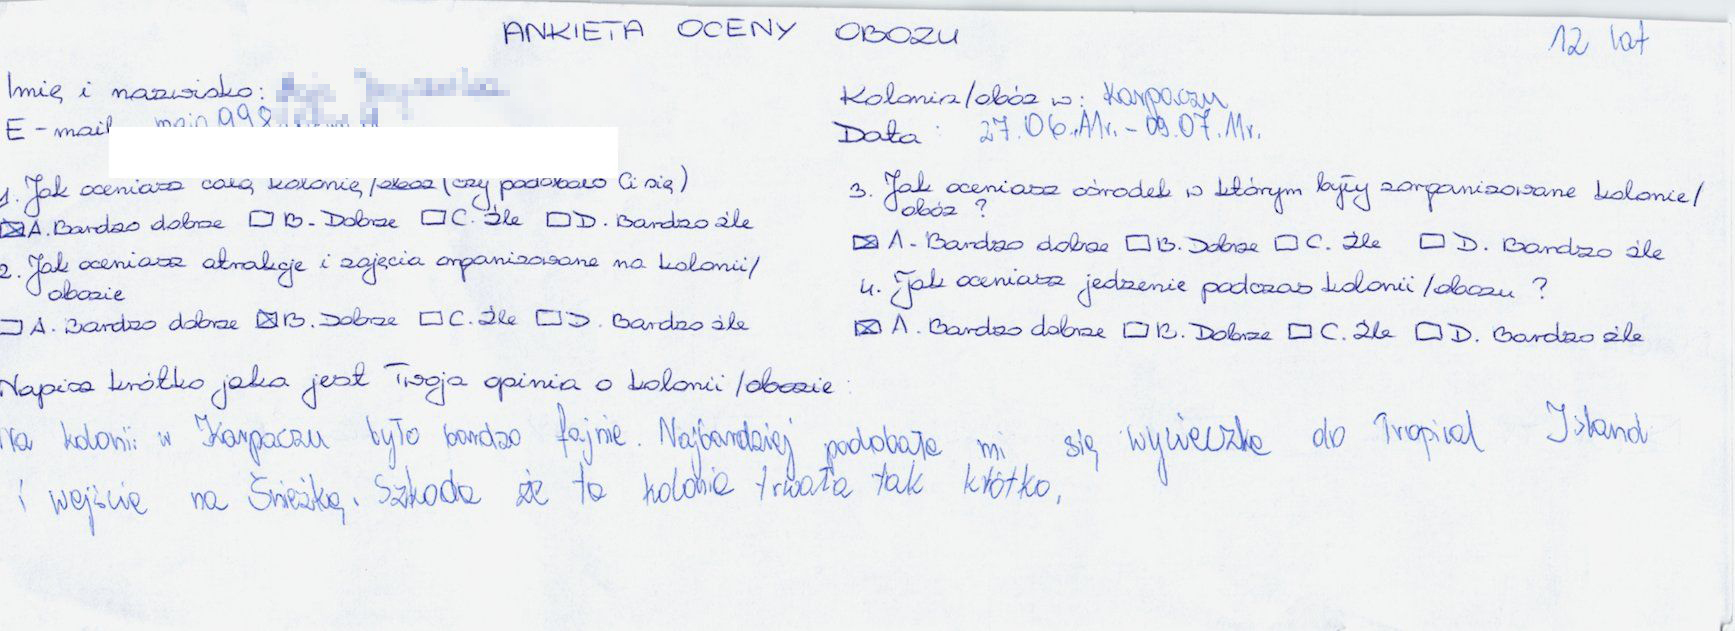 ANKIETA OCENY OBOZU
12 lat
Imię i nazwisko:
E-mail
Kolonia/obóz w: Karpaczu
Data: 27.06.11r.-09.07.11r.
1. Jak oceniasz całą kolonię/obóz (czy podobało Ci się)
☒ A. Bardzo dobrze ☐ B. Dobrze ☐ C. Źle ☐ D. Bardzo źle
2. Jak oceniasz atrakcje i zajęcia organizowane na kolonii/
obozie
☐ A. Bardzo dobrze ☒ B. Dobrze ☐ C. Źle ☐ D. Bardzo źle
3. Jak oceniasz ośrodek w którym były zorganizowane kolonie/
obóz ?
☒ A. Bardzo dobrze ☐ B. Dobrze ☐ C. Źle ☐ D. Bardzo źle
4. Jak oceniasz jedzenie podczas kolonii/obozu ?
☒ A. Bardzo dobrze ☐ B. Dobrze ☐ C. Źle ☐ D. Bardzo źle
Napisz krótko jaka jest Twoja opinia o kolonii/obozie:
Na kolonii w Karpaczu było bardzo fajnie. Najbardziej podobała mi się wycieczka do Tropical Island
i wejście na Śnieżkę. Szkoda że ta kolonia trwała tak krótko.